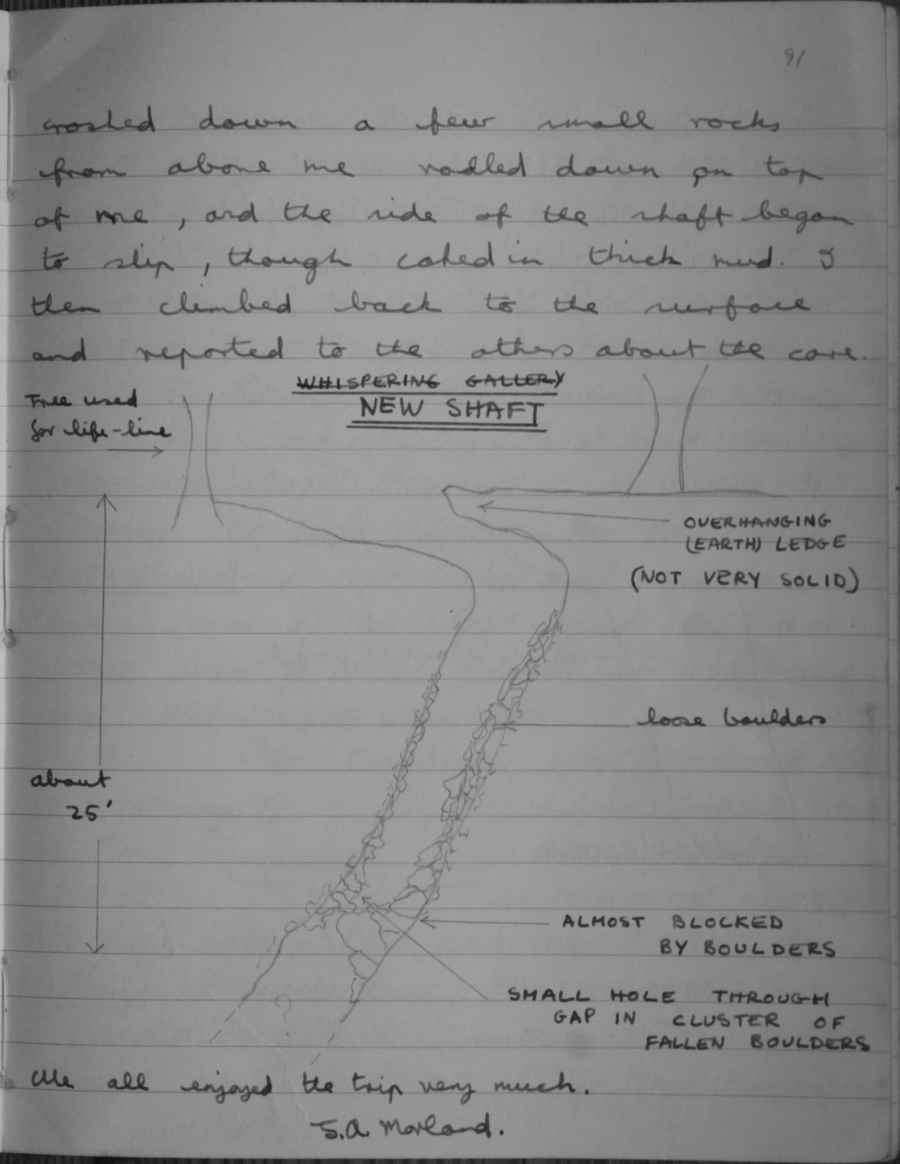 91
crashed down a few small rocks
from above me rodled down on top
of me, and the side of the shaft began
to slip, though caked in thick mud. I
then climbed back to the surface
and reported to the others about the cave.
WHISPERING GALLERY
NEW SHAFT
Tree used
for life-line
OVERHANGING
(EARTH) LEDGE
(NOT VERY SOLID)
loose boulders
about
25'
ALMOST BLOCKED
BY BOULDERS
SMALL HOLE THROUGH
GAP IN CLUSTER OF
FALLEN BOULDERS
?
We all enjoyed the trip very much.
S.A Morland.